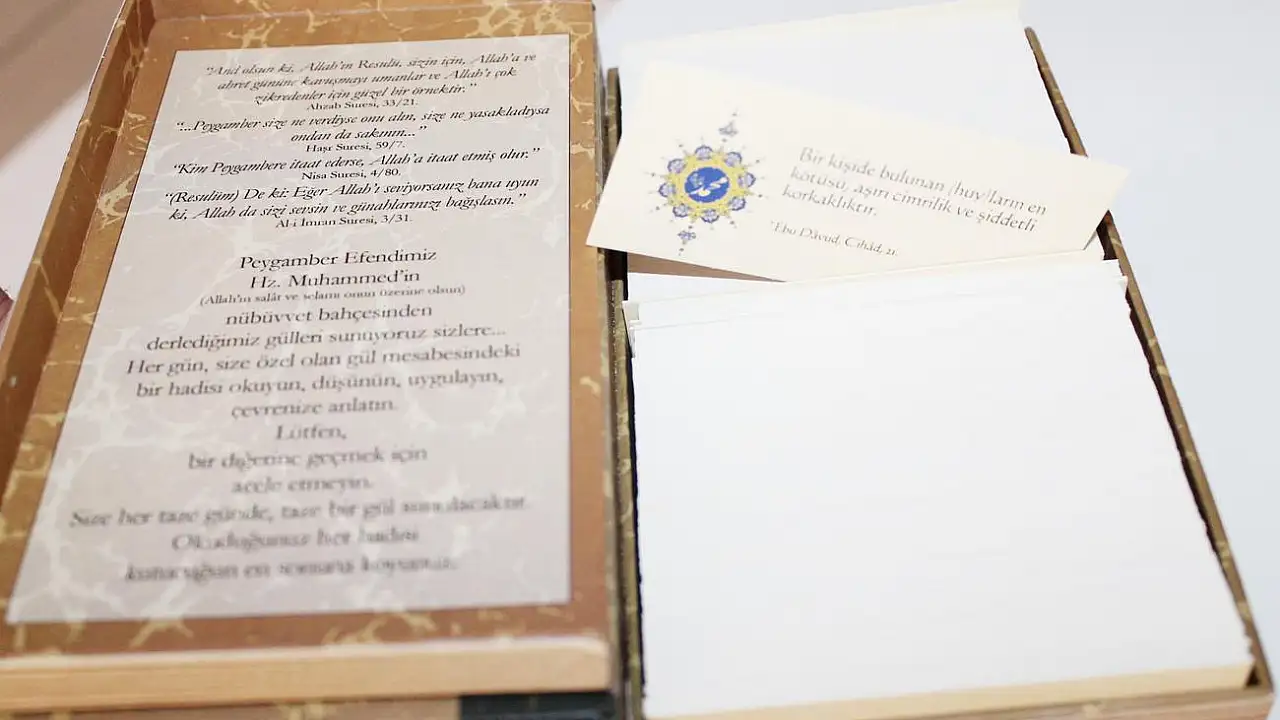 "And olsun ki, Allah'ın Resulü, sizin için, Allah'a ve
ahret gününe kavuşmayı umanlar ve Allah'ı çok
zikredenler için güzel bir örnektir."
Ahzab Suresi, 33/21.
"...Peygamber size ne verdiyse onu alın, size ne yasakladıysa
ondan da sakının..."
Haşr Suresi, 59/7.
"Kim Peygambere itaat ederse, Allah'a itaat etmiş olur."
Nisa Suresi, 4/80.
"(Resulüm) De ki: Eğer Allah'ı seviyorsanız bana uyun
ki, Allah da sizi sevsin ve günahlarınızı bağışlasın."
Al-i İmran Suresi, 3/31.
Peygamber Efendimiz
Hz. Muhammed'in
(Allah'ın salât ve selamı onun üzerine olsun)
nübüvvet bahçesinden
derlediğimiz gülleri sunuyoruz sizlere...
Her gün, size özel olan gül mesabesindeki
bir hadisi okuyun, düşünün, uygulayın,
çevrenize anlatın.
Lütfen,
bir diğerine geçmek için
acele etmeyin.
Size her taze günde, taze bir gül sunulacaktır.
Okuduğunuz her hadisi
kutucuğun en sonuna koyunuz.
Bir kişide bulunan (huy)ların en
kötüsü, aşırı cimrilik ve şiddetli
korkaklıktır.
Ebu Dâvud, Cihâd, 21.